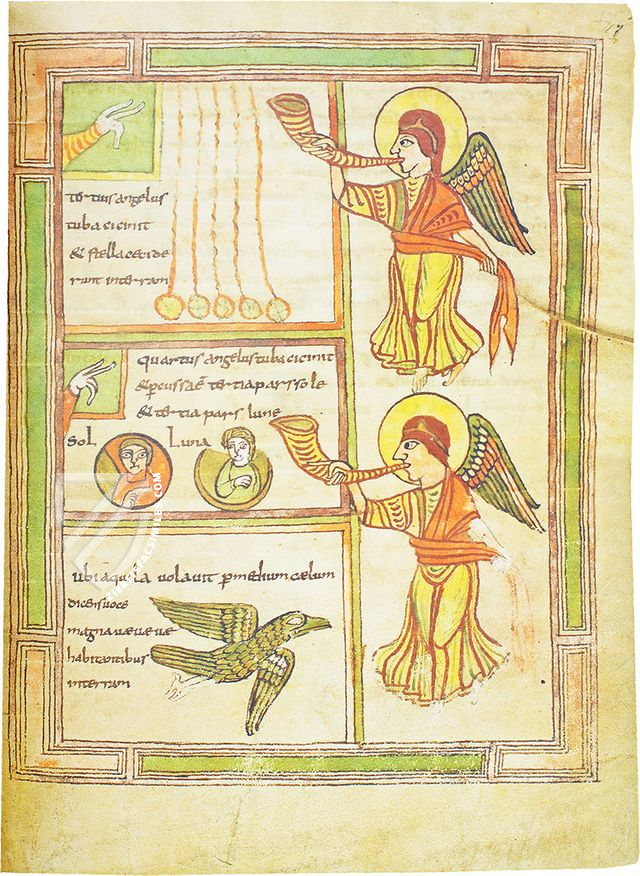 tertius angelus
tuba cicinit
& stella cecide
runt interram
quartus angelus tuba cicinit
& percussaē tertia pars sole
& tertia pars lune
sol Luna
ubi aquila volavit p medium cælum
dicens voce
magna væ væ væ
habitantibus
interram